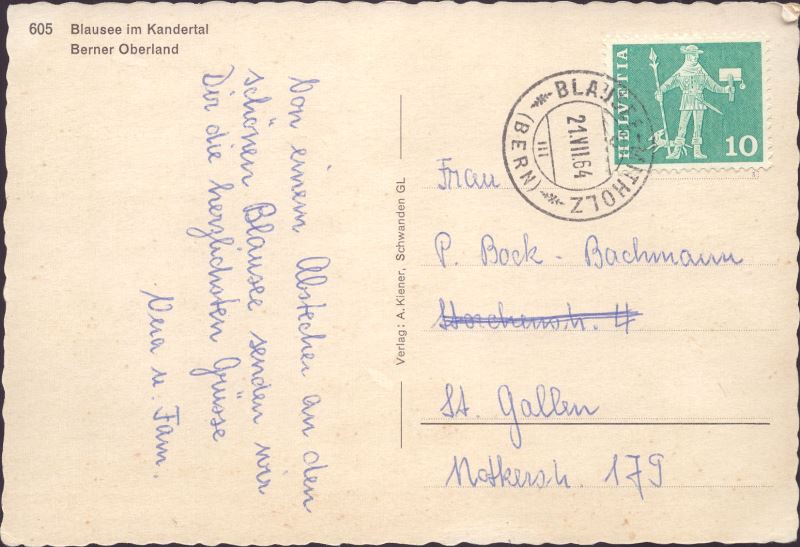 605 Blausee im Kandertal
Berner Oberland
Von einem Abstecher an den
schönen Blausee senden wir
Dir die herzlichsten Grüsse
Vera u. Fam.
Verlag: A. Kiener, Schwanden GL
BLAUSEE-MITHOLZ
21.VII.64
(BERN)
HELVETIA
10
Frau
P. Bock - Bachmann
Storchenstr. 4
St. Gallen
Notkerstr. 179